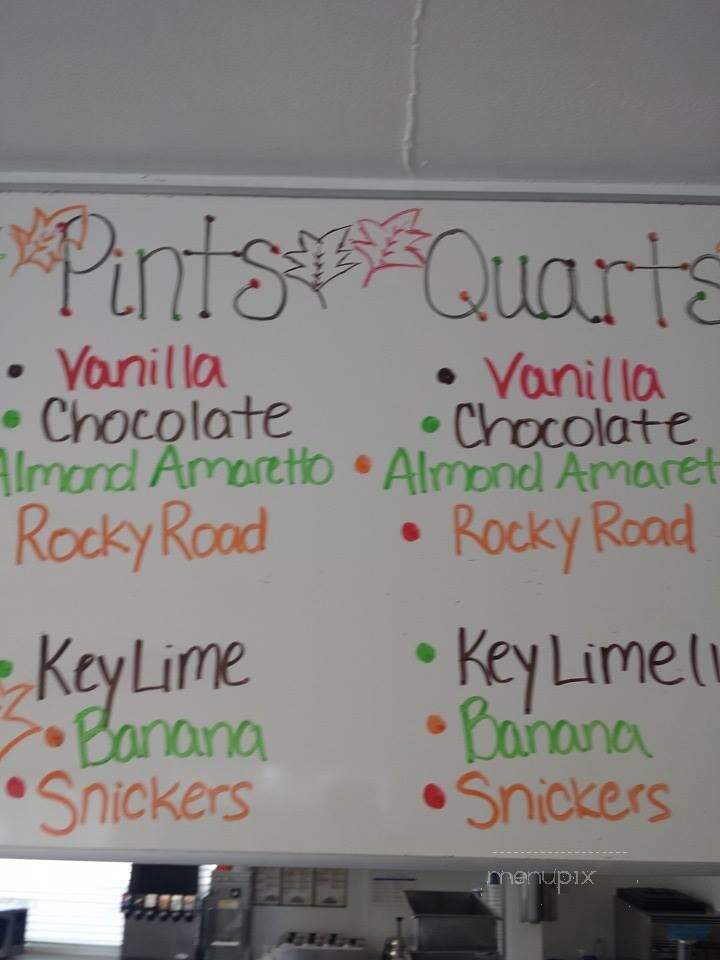 Pints
Vanilla
Chocolate
Almond Amaretto
Rocky Road
Key Lime
Banana
Snickers
Quarts
Vanilla
Chocolate
Almond Amaret
Rocky Road
Key Lime (1
Banana
Snickers
menupix